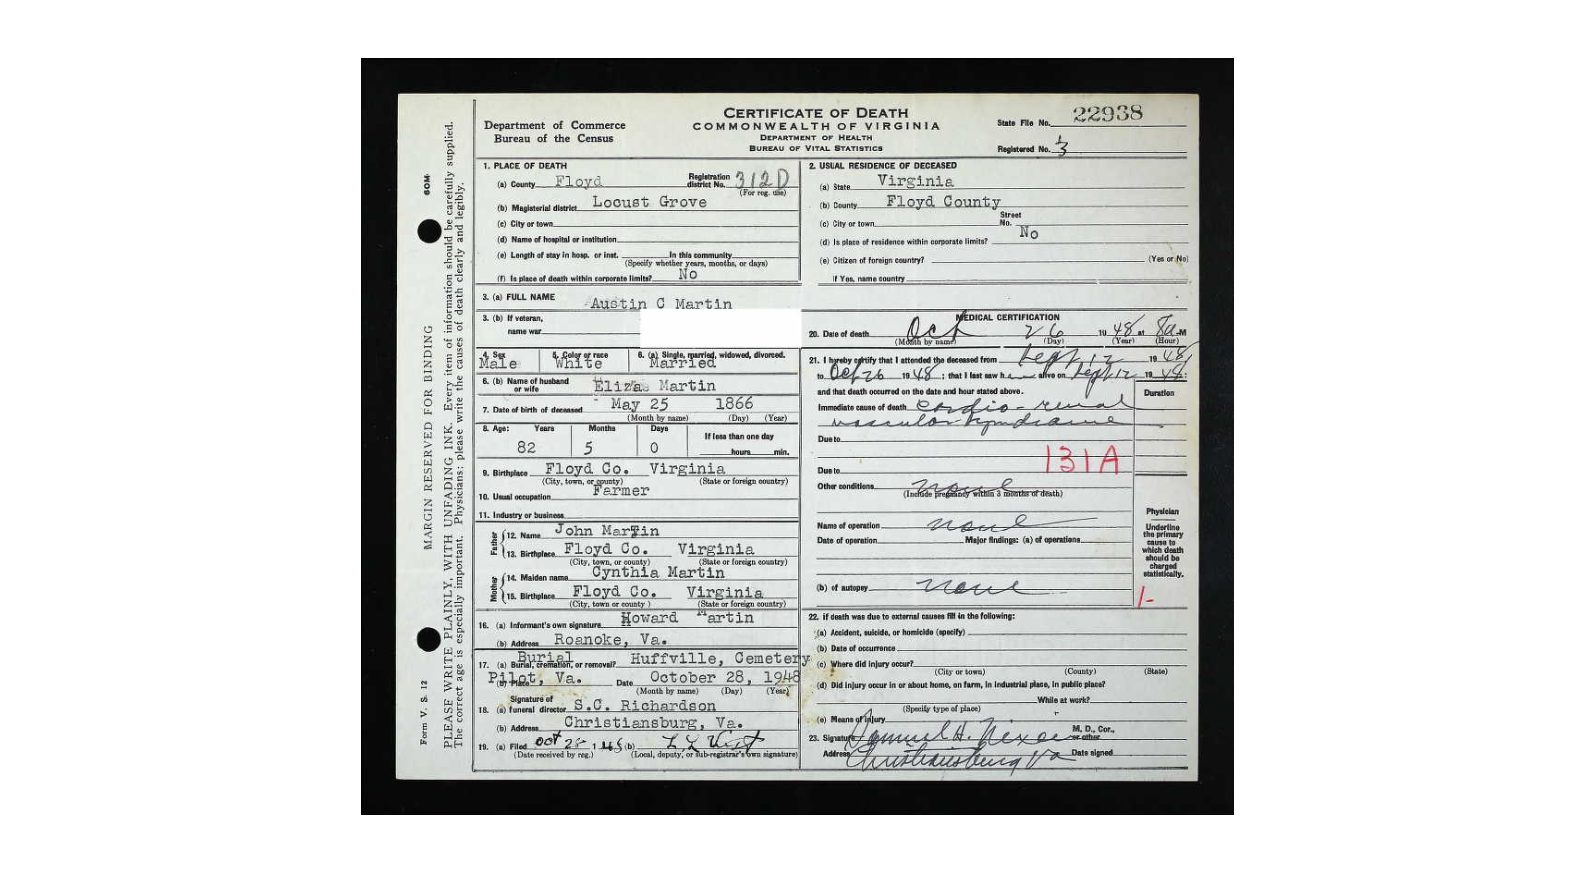 CERTIFICATE OF DEATH
COMMONWEALTH OF VIRGINIA
DEPARTMENT OF HEALTH
BUREAU OF VITAL STATISTICS
Department of Commerce
Bureau of the Census
State File No. 22938
Registered No. 13
1. PLACE OF DEATH
(a) County Floyd Registration district No. 312D
(For reg. use)
(b) Magisterial district Locust Grove
(c) City or town
(d) Name of hospital or institution
(e) Length of stay in hosp. or inst. In this community
(Specify whether years, months, or days)
(f) Is place of death within corporate limits? No
2. USUAL RESIDENCE OF DECEASED
(a) State Virginia
(b) County Floyd County
(c) City or town Street No.
(d) Is place of residence within corporate limits? No
(e) Citizen of foreign country? (Yes or No)
If Yes, name country
3. (a) FULL NAME Austin C Martin
3. (b) If veteran,
name war
4. Sex 5. Color or race 6. (a) Single, married, widowed, divorced.
Male White Married
6. (b) Name of husband or wife Eliza Martin
7. Date of birth of deceased May 25 1866
(Month by name) (Day) (Year)
8. Age: Years Months Days If less than one day
82 5 0 hours min.
9. Birthplace Floyd Co. Virginia
(City, town, or county) (State or foreign country)
10. Usual occupation Farmer
11. Industry or business
Father
12. Name John Martin
13. Birthplace Floyd Co. Virginia
(City, town, or county) (State or foreign country)
Mother
14. Maiden name Cynthia Martin
15. Birthplace Floyd Co. Virginia
(City, town or county ) (State or foreign country)
16. (a) Informant's own signature Howard Martin
(b) Address Roanoke, Va.
17. (a) Burial, cremation, or removal? Burial Huffville, Cemetery
(b) Place Pilot, Va. Date October 28, 1948
(Month by name) (Day) (Year)
18. (a) Signature of funeral director S.C. Richardson
(b) Address Christiansburg, Va.
19. (a) Filed Oct 28 1948 (b)
(Date received by reg.) (Local, deputy, or sub-registrar's own signature)
MEDICAL CERTIFICATION
20. Date of death Oct 26 1948 at 8 a.M
(Month by name) (Day) (Year) (Hour)
21. I hereby certify that I attended the deceased from Sept 12 1948
to Oct 26 1948; that I last saw h alive on Sept 12 1948;
and that death occurred on the date and hour stated above. Duration
Immediate cause of death cardio-renal
vascular syndrome
Due to
Due to 131A
Other conditions none
(Include pregnancy within 3 months of death)
Name of operation none
Date of operation Major findings: (a) of operations
(b) of autopsy none
Physician
Underline
the primary
cause to
which death
should be
charged
statistically.
1-
22. if death was due to external causes fill in the following:
(a) Accident, suicide, or homicide (specify)
(b) Date of occurrence
(c) Where did injury occur?
(City or town) (County) (State)
(d) Did injury occur in or about home, on farm, in industrial place, in public place?
While at work?
(Specify type of place)
(e) Means of injury
23. Signature Samuel H. M. D., Cor., or other
Address Christiansburg Va Date signed
Form V. S. 12
MARGIN RESERVED FOR BINDING
60M
PLEASE WRITE PLAINLY, WITH UNFADING INK. Every item of information should be carefully supplied.
The correct age is especially important. Physicians: please write the causes of death clearly and legibly.